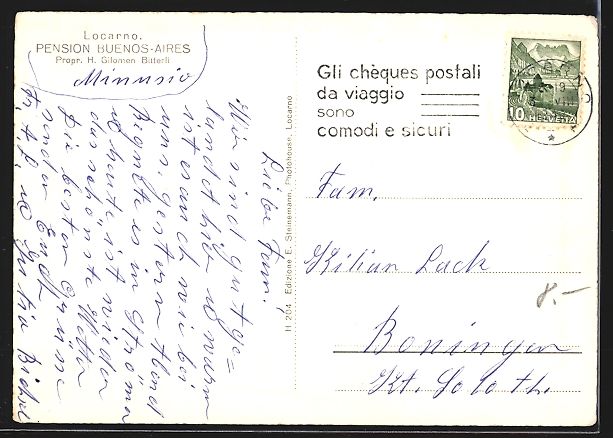 Locarno.
PENSION BUENOS-AIRES
Propr. H. Gilomen Bitterli
Minusio
Gli chèques postali
da viaggio
sono
comodi e sicuri
10
HELVETIA
H 204 Edizione E. Steinemann, Photohouse, Locarno
Liebe Fam.
Wir sind gut ge=
landet hier u. warm
ist es auch wie bei
uns, gestern Abend
Regnete es in Ströme
u. heute ist wieder
das schönste Wetter
Die besten Grüsse
senden Euch
Fam.
Kilian Lack
Boningen
Kt. Soloth.
8.—